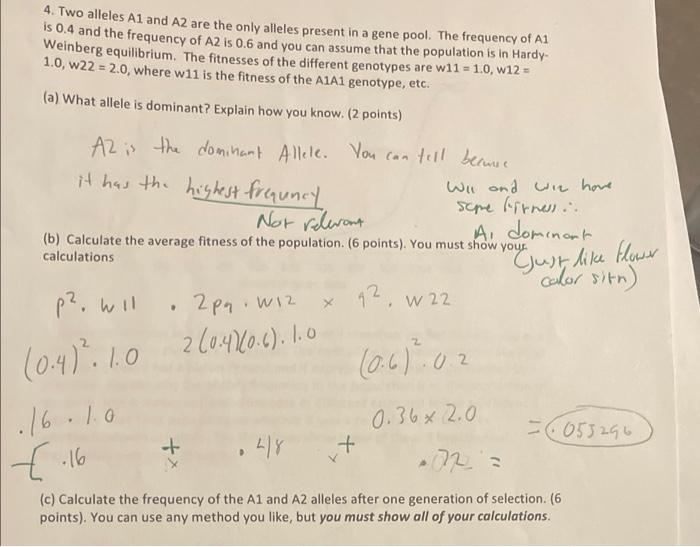 4. Two alleles A1 and A2 are the only alleles present in a gene pool. The frequency of A1
is 0.4 and the frequency of A2 is 0.6 and you can assume that the population is in Hardy-
Weinberg equilibrium. The fitnesses of the different genotypes are w11 = 1.0, w12 =
1.0, w22 = 2.0, where w11 is the fitness of the A1A1 genotype, etc.
(a) What allele is dominant? Explain how you know. (2 points)
A2 is the dominant Allele. You can tell because
it has the highest frequncy
Not relevant
W11 and W12 have
same fitness ∴
A1 dominant
(just like flower
color sitn)
(b) Calculate the average fitness of the population. (6 points). You must show your
calculations
p². w11 · 2pq · w12 x q². w22
(0.4)². 1.0 2(0.4)(0.6). 1.0 (0.6)². 0.2
.16 · 1.0 0.36 x 2.0 = .055296
.16 + x .48 + x .72 =
(c) Calculate the frequency of the A1 and A2 alleles after one generation of selection. (6
points). You can use any method you like, but you must show all of your calculations.